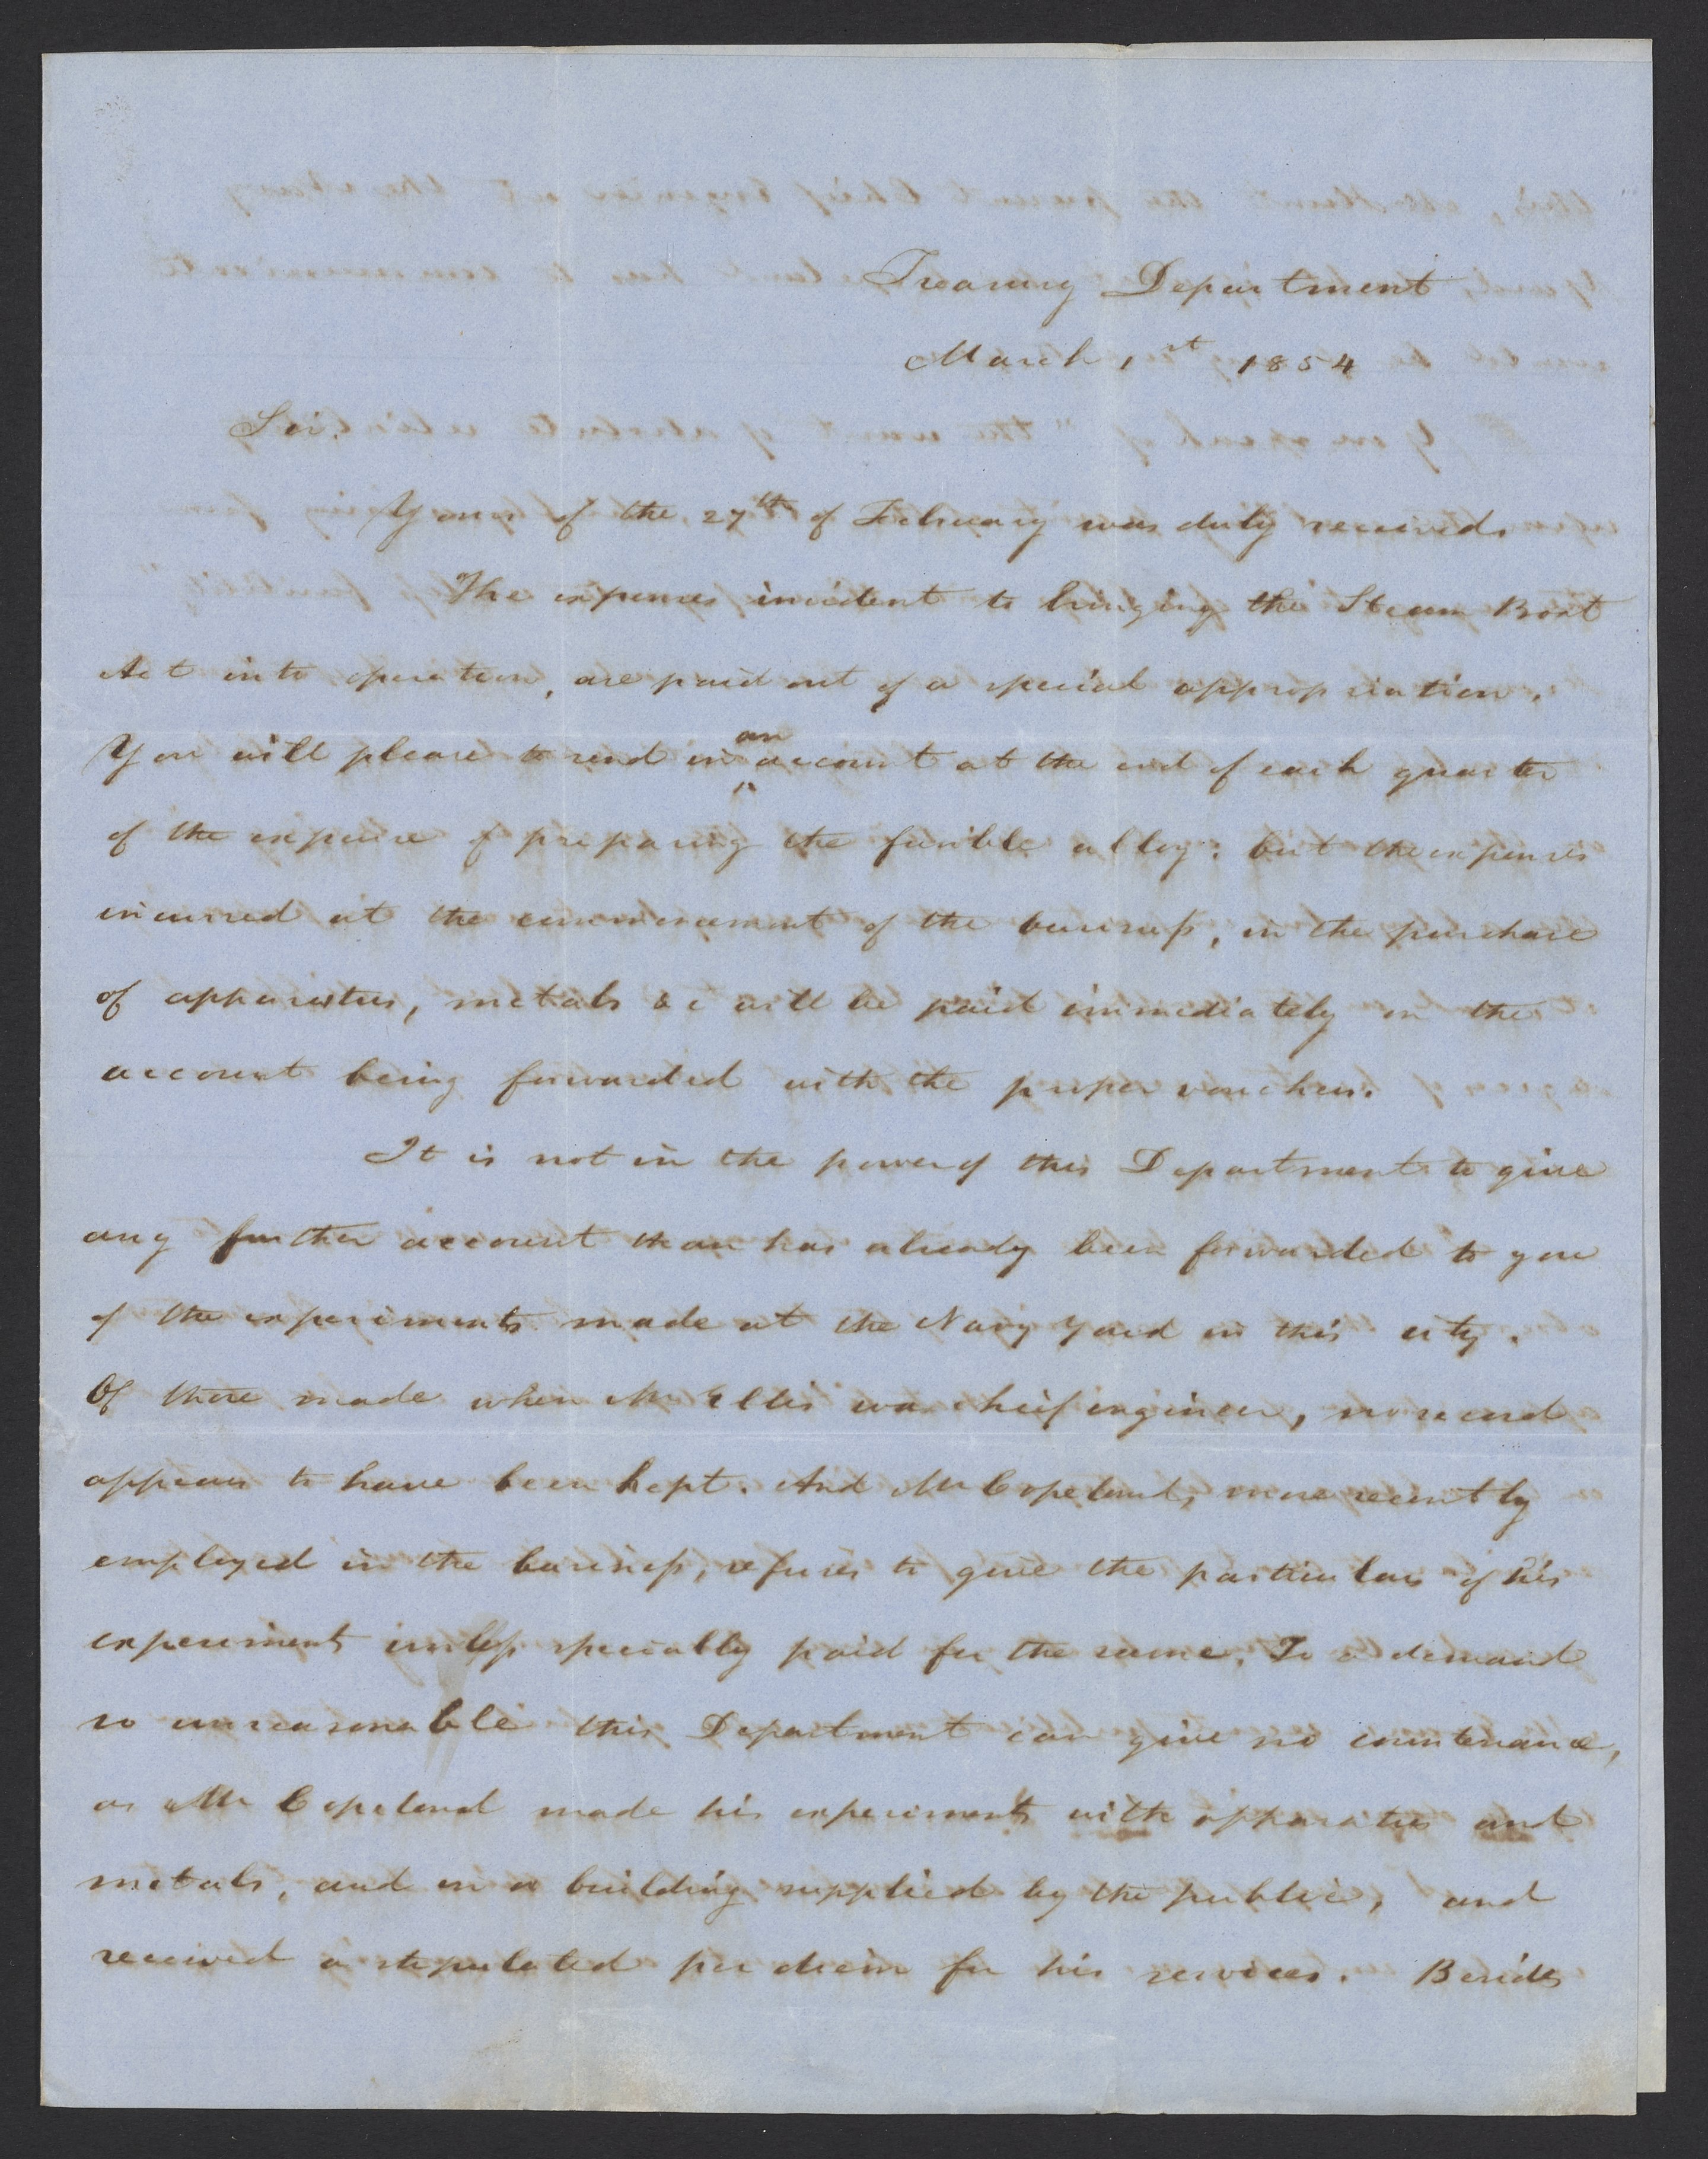 Treasury Department
March 1st 1854
Sir.
Yours of the 27th of February was duly received.
The expenses incident to bringing the Steam Boat
Act into operation, are paid out of a special appropriation.
You will please to send in an account at the end of each quarter
of the expense of preparing the fusible alloy: but the expenses
incurred at the commencement of the business, in the purchase
of apparatus, metals &c will be paid immediately on the
account being forwarded with the proper vouchers.
It is not in the power of this Department to give
any further account than has already been forwarded to you
of the experiments made at the Navy Yard in this city.
Of those made when Mr Ellis was cheif engineer, no record
appears to have been kept. And Mr Copeland, more recently
employed in the business, refuses to give the particulars of his
experiments unless specially paid for the same. To a demand
so unreasonable this Department can give no countenance,
as Mr Copeland made his experiments with apparatus and
metals, and in a building supplied by the public, and
received a stipulated per diem for his services. Besides